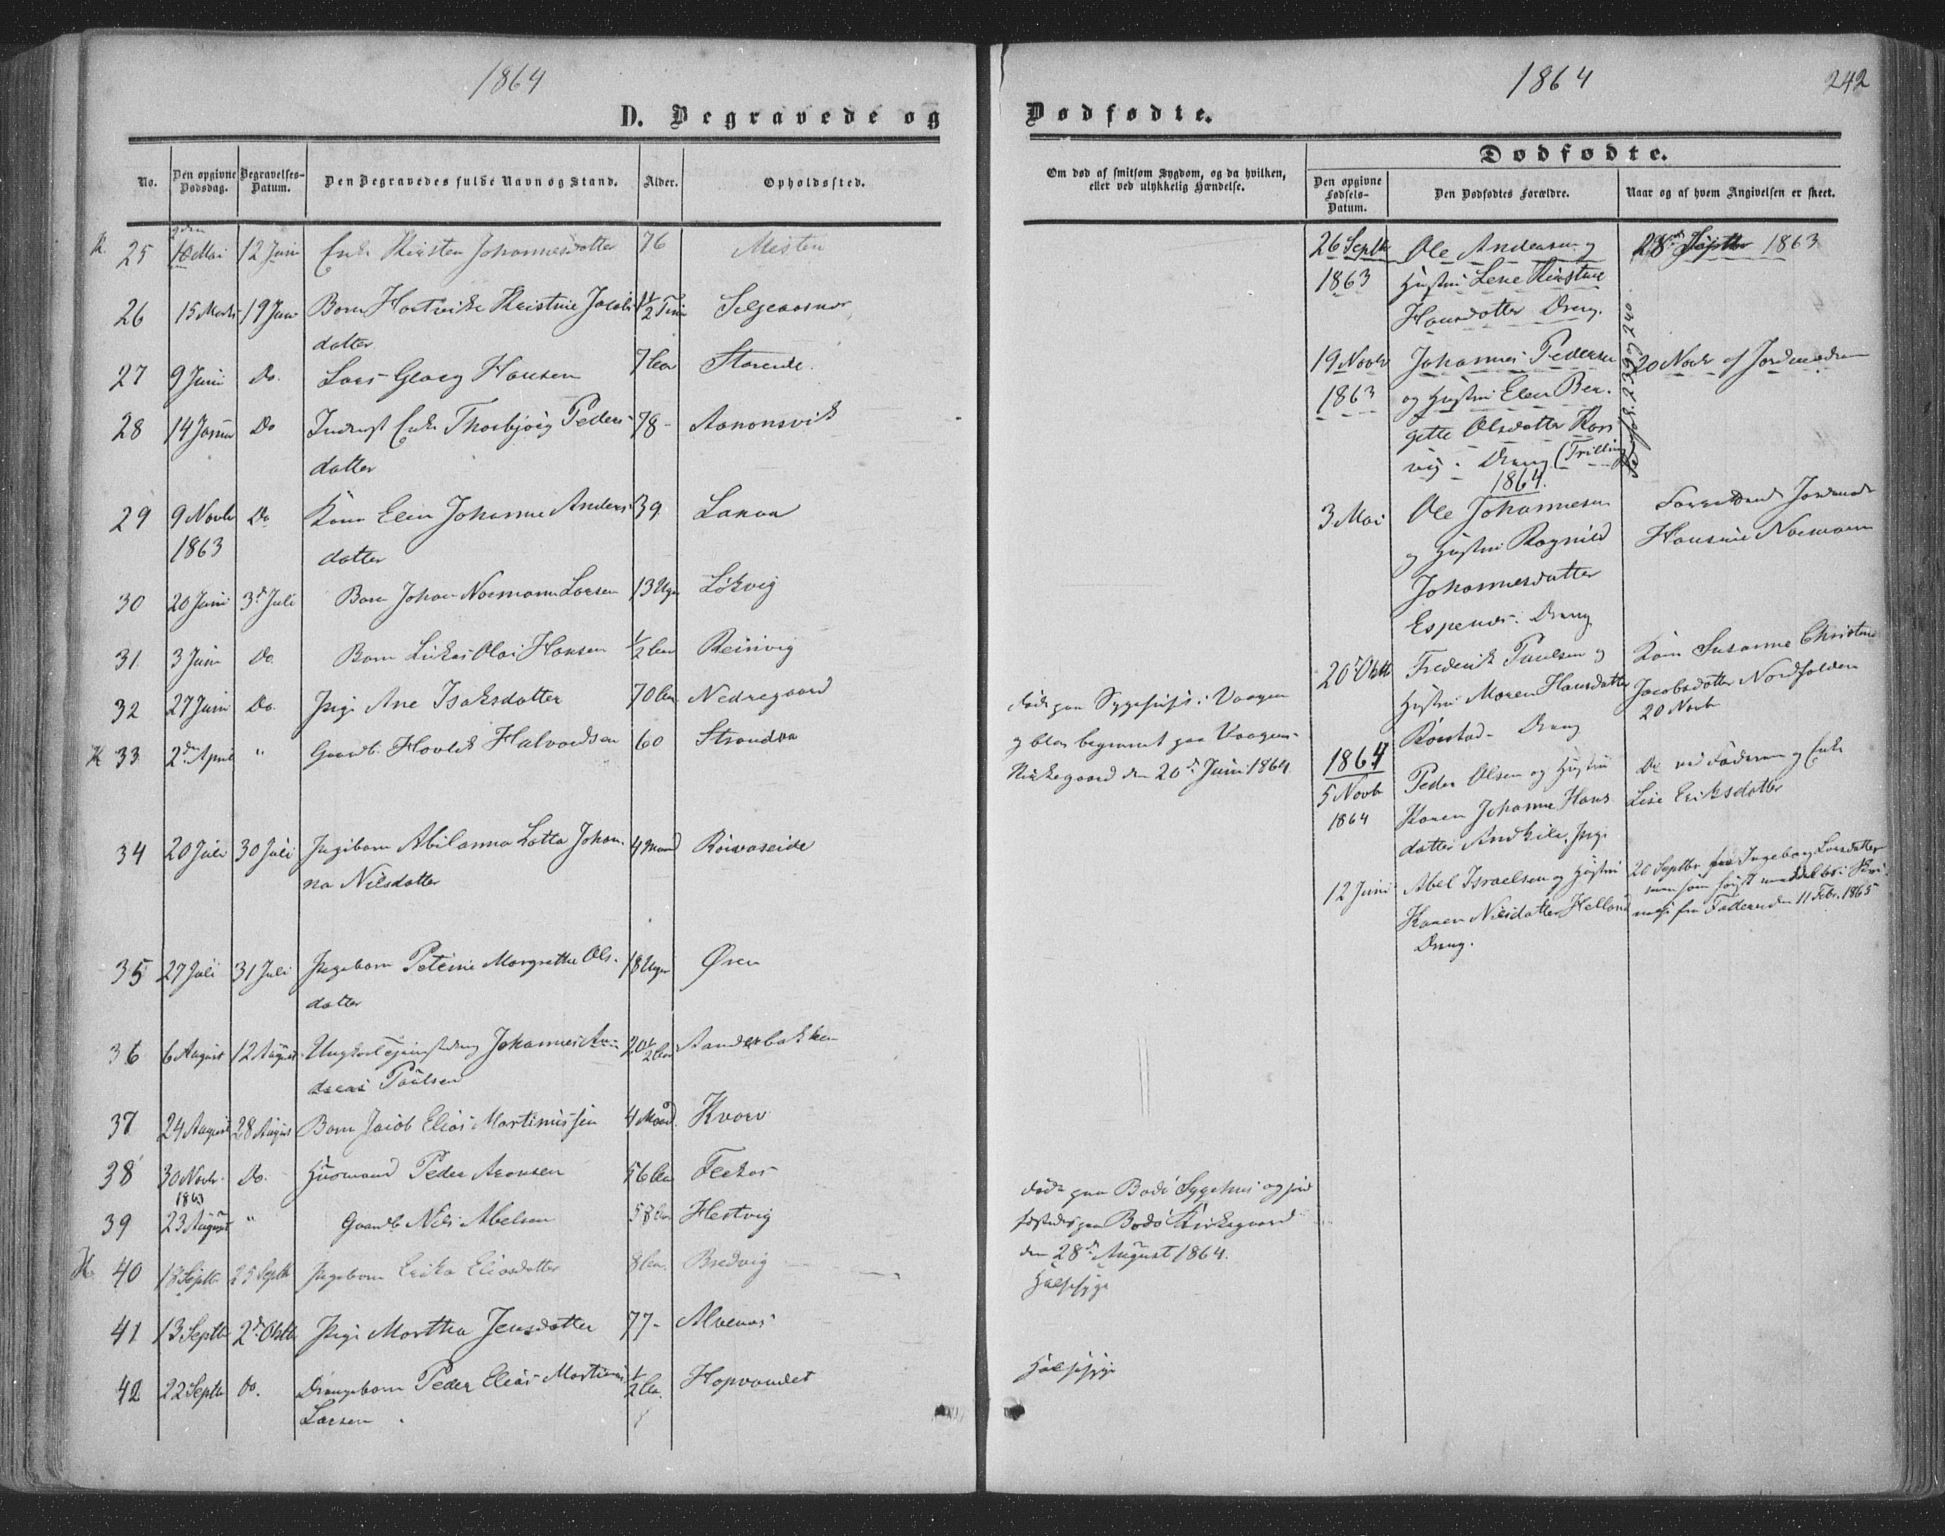 1864
D. Begravede og
No.
Den opgivne Dødsdag.
Begravelses-Datum.
Den Begravedes fulde Navn og Stand.
Alder.
Opholdssted.
25 10 Mai 12 Juni Enke Kirsten Johannesdatter 76 Misten
26 15 Marts 19 Juni Barn Hartvikke Kristine Jacobs 1/2 Time
datter
27 9 Juni Do. Lars Georg Hansen 7 Storende.
28 14 Do Enke Thorbjørg Peders 78 - Aanonsvik
datter
29 9 Novbr Do Kone Elen Johanne Anders 39
1863 datter
30 20 Juni 3d Juli Barn Johan Normann Larsen 13 Uger Løkvig
31 3 Juni Do. Barn Lukas Olai Hansen 1/2 Reinvig
32 27 Juni Do. Pige Ane Isaksdatter 70 Nedregaard
33 2den April " Gaardb. Hovlek Halvordsen 60 Strandaa
34 20 Juli 30 Juli Pigebarn Abilanna Lotta Johan- 4 Maand
na Nilsdatter
35 27 Juli 31 Juli Pigebarn Petrine Margrethe Ols- 18 Uger Øren
datter
36 6 August 12 August Ungkarl Johannes An-
dreas Paulsen
37 24 August 28 August Barn Jacob Elias Martinussen 4 Maand.
38 30 Novbr. Do. Husmand Peder Aronsen 56
1863
39 23 August " Gaardb Nils Abelsen 58 Hestvig
40 13 Septbr 25 Septbr Pigebarn Erika Eliasdatter 8 Bredvig
41 13 Septbr 2d Oktbr Pige Martha Jensdatter 77 - Alvenes
42 22 Septbr Do. Drengebarn Peder Elias Martinus 1/2 Hopvandet
Larsen
1864
242
Dødfødte.
Dødfødte.
Om død af smitsom Sygdom, og da hvilken,
eller ved ulykkelig Hændelse.
Den opgivne Fødsels-Datum.
Den Dødfødtes Forældre.
Naar og af hvem Angivelsen er skeet.
26 Septbr Ole Andersen og 28d Septbr 1863
1863 Hustru Lene Kirstine
Hansdatter Dreng.
19 Novbr Johannes Pedersen 20 Novbr af Jordemodren
1863 og Hustru Elen Ber-
gette Olsdatter Kors
vig - Dreng (Trilling
1864.
3 Mai Ole Johannesen
og Hustru Ragnild Hansine Normann
Johannesdatter
Espenes. Dreng
20 Oktb Frederik Paulsen og Kone Susanne Christine
Hustru Maren Hansdatter Jacobsdatter Nordfolden
Rørstad - Dreng 20 Novb
døde paa Sygehuset i Vaagen
og blev begravet paa Vaagens
Kirkegaard den 20d Juni 1864
1864
5 Novb Peder Olsen og Hustru Do ved Faderen og Enke
1864 Karen Johanne Hans Lise Eriksdatter
datter Andkile, Pige
12 Juni Abel Israelsen og Hustru 20 Septbr fra Ingeborg Larsdatter
Karen Nilsdatter Helland fra Faderen den 11 Febr. 1865
Dreng.
døde paa Bodø Sygehus og jord
fæstedes paa Bodø Kirkegaard
den 28d August 1864.
Halssyge
Halssyge